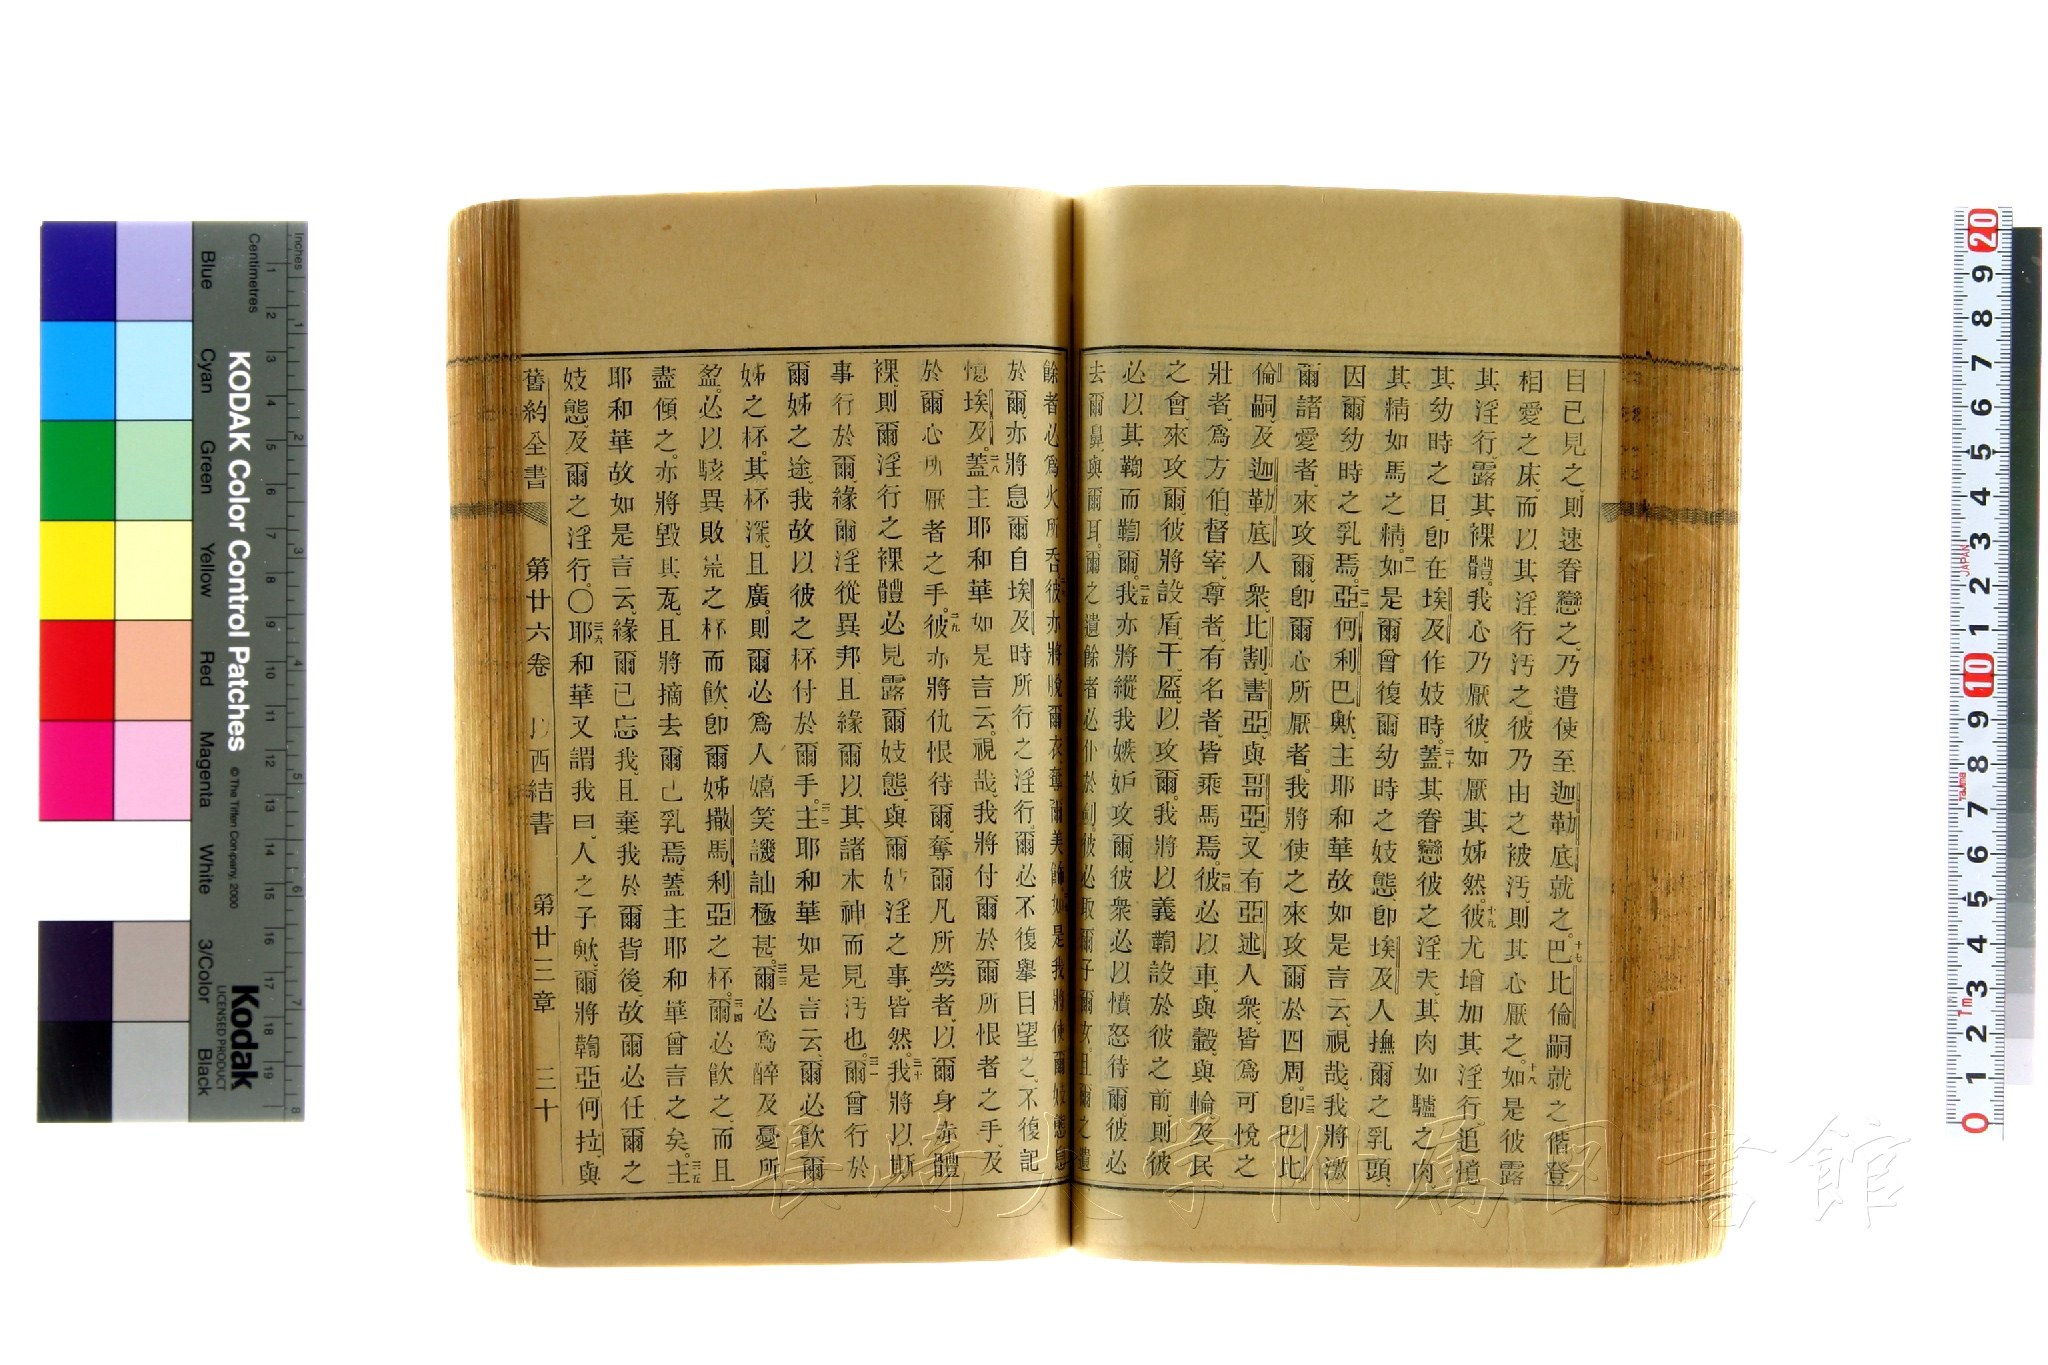 目已見之、則速眷戀之、乃遣使至迦勒底就之。十七巴比倫嗣就之偕登
相愛之床、而以其淫行污之、彼乃由之被污、則其心厭之。十八如是彼露
其淫行、露其裸體、我心乃厭彼、如厭其姊然。十九彼尤增加其淫行、追憶
其幼時之日、卽在埃及作妓時。二十蓋其眷戀彼之淫夫、其肉如驢之肉
其精如馬之精。二一如是爾曾復爾幼時之妓態、卽埃及人撫爾之乳頭、
因爾幼時之乳焉。二二亞何利巴歟、主耶和華故如是言云、視哉、我將激
爾諸愛者、來攻爾、卽爾心所厭者、我將使之來攻爾於四周。二三卽巴比
倫嗣、及迦勒底人衆、比割、書亞、與哥亞、又有亞述人衆、皆爲可悅之
壯者、爲方伯、督宰、尊者、有名者、皆乘馬焉。二四彼必以車、與轂、與輪、及民
之會來攻爾、彼將設盾、干、盔、以攻爾、我將以義鞫設於彼之前、則彼
必以其鞫而鞫爾。二五我亦將縱我嫉妒攻爾、彼衆必以憤怒待爾、彼必
去爾鼻、與爾耳、爾之遺餘者必仆於劍、彼必取爾子爾女、且爾之遺
餘者必爲火所吞、彼亦將脫爾衣、奪爾美飾、如是我將使爾妓態息
於爾、亦將息爾自埃及時所行之淫行、爾必不復舉目望之、不復記
憶埃及。二八蓋主耶和華如是言云、視哉、我將付爾於爾所恨者之手、及
於爾心所厭者之手。二九彼亦將仇恨待爾、奪爾凡所勞者、以爾身赤體
裸、則爾淫行之裸體必見露、爾妓態、與爾姦淫之事、皆然。三十我將以斯
事行於爾、緣爾淫從異邦、且緣爾以其諸木神而見污也。三一爾曾行於
爾姊之途、我故以彼之杯付於爾手。三二主耶和華如是言云、爾必飲爾
姊之杯、其杯深、且廣、則爾必爲人嬉笑譏訕極甚。三三爾必爲醉及憂所
盈、必以駭異敗荒之杯而飲、卽爾姊撒馬利亞之杯。三四爾必飲之、而且
盡傾之、亦將毀其瓦、且將摘去爾己乳焉、蓋主耶和華曾言之矣。三五主
耶和華故如是言云、緣爾已忘我、且棄我於爾背後、故爾必任爾之
妓態、及爾之淫行。〇三六耶和華又謂我曰、人之子歟、爾將鞫亞何拉、與
舊約全書 第廿六卷 以西結書 第廿三章 三十
KODAK Color Control Patches
©The Tiffen Company, 2000
Kodak
LICENSED PRODUCT
Inches
Centimetres
Blue
Cyan
Green
Yellow
Red
Magenta
White
3/Color
Black
長崎大学附属図書館
JAPAN
Tajima